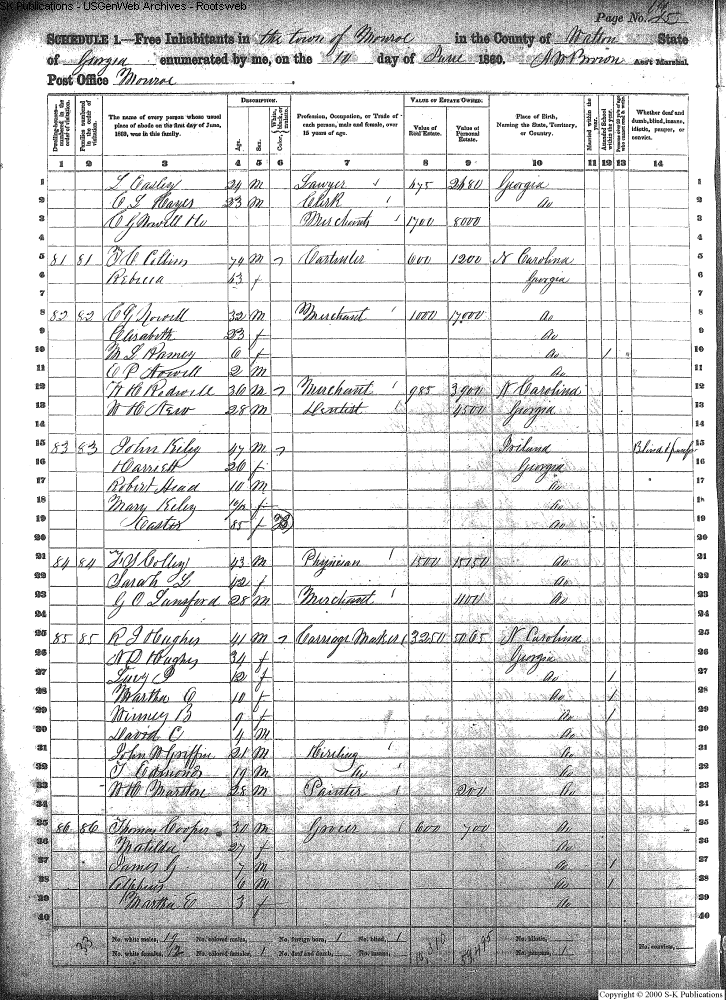 S-K Publications - USGenWeb Archives - Rootsweb
Page No. 25
SCHEDULE 1.—Free Inhabitants in the town of Monroe in the County of Walton State
of Georgia enumerated by me, on the 10 day of June 1860. Ass't Marshal.
Post Office Monroe
Dwelling-houses—numbered in the order of visitation.
Families numbered in the order of visitation.
The name of every person whose usual place of abode on the first day of June, 1860, was in this family.
DESCRIPTION.
Age.
Sex.
Color, White, black, or mulatto.
Profession, Occupation, or Trade of each person, male and female, over 15 years of age.
VALUE OF ESTATE OWNED.
Value of Real Estate.
Value of Personal Estate.
Place of Birth, Naming the State, Territory, or Country.
Married within the year.
Attended School within the year.
Whether deaf and dumb, blind, insane, idiotic, pauper, or convict.
1 2 3 4 5 6 7 8 9 10 11 12 13 14
1 L Easley 24 M Lawyer 475 2480 Georgia 1
2 C L Hayes 23 M Clerk Do 2
3 C G Nowell Merchants 1700 8000 3
4 4
5 81 81 74 M Carpenter 600 1200 N Carolina 5
6 Rebecca 43 f Georgia 6
7 7
8 82 82 C G Nowell 32 M Merchant 1000 17000 Do 8
9 Elisabeth 23 f Do 9
10 M L Ramey 6 f Do 1 10
11 C P Nowell 2 M Do 11
12 36 M Merchant 985 3900 N Carolina 12
13 W H 28 M Dentist 4500 Georgia 13
14 14
15 83 83 John Kiley 47 M Iriland Blind & 15
16 Harriett 26 f Georgia 16
17 Robert Head 10 M Do 17
18 Mary Kiley f Do 18
19 Easter 85 f B Do 19
20 20
21 84 84 Colley 43 M Physician 1500 15150 Do 21
22 Sarah L 42 f Do 22
23 G O Lunsford 28 M Merchant 1100 Do 23
24 24
25 85 85 R J Hughes 41 M Carriage Maker 3250 5065 N Carolina 25
26 Hughes 34 f Georgia 26
27 Lucy P 12 f Do 1 27
28 Martha C 10 f Do 1 28
29 Winney B 9 f Do 1 29
30 David C 4 M Do 30
31 John W Griffin 21 M Hireling Do 31
32 T Edmonds 19 M Do Do 32
33 W H Marston 28 M Painter 200 Do 33
34 34
35 86 86 Thomas Cooper 30 M Grocer 600 700 Do 35
36 Matilda 27 f Do 36
37 James G 7 M Do 1 37
38 Alpheus 6 M Do 1 38
39 Martha E 3 f Do 39
40 40
33 No. white males, 19 No. colored males, No. foreign born, 1 No. blind, 1 No. idiotic,
No. white females, 12 No. colored females, 1 No. deaf and dumb, No. insane, No. paupers, 1 No. convicts,
Copyright © 2000 S-K Publications